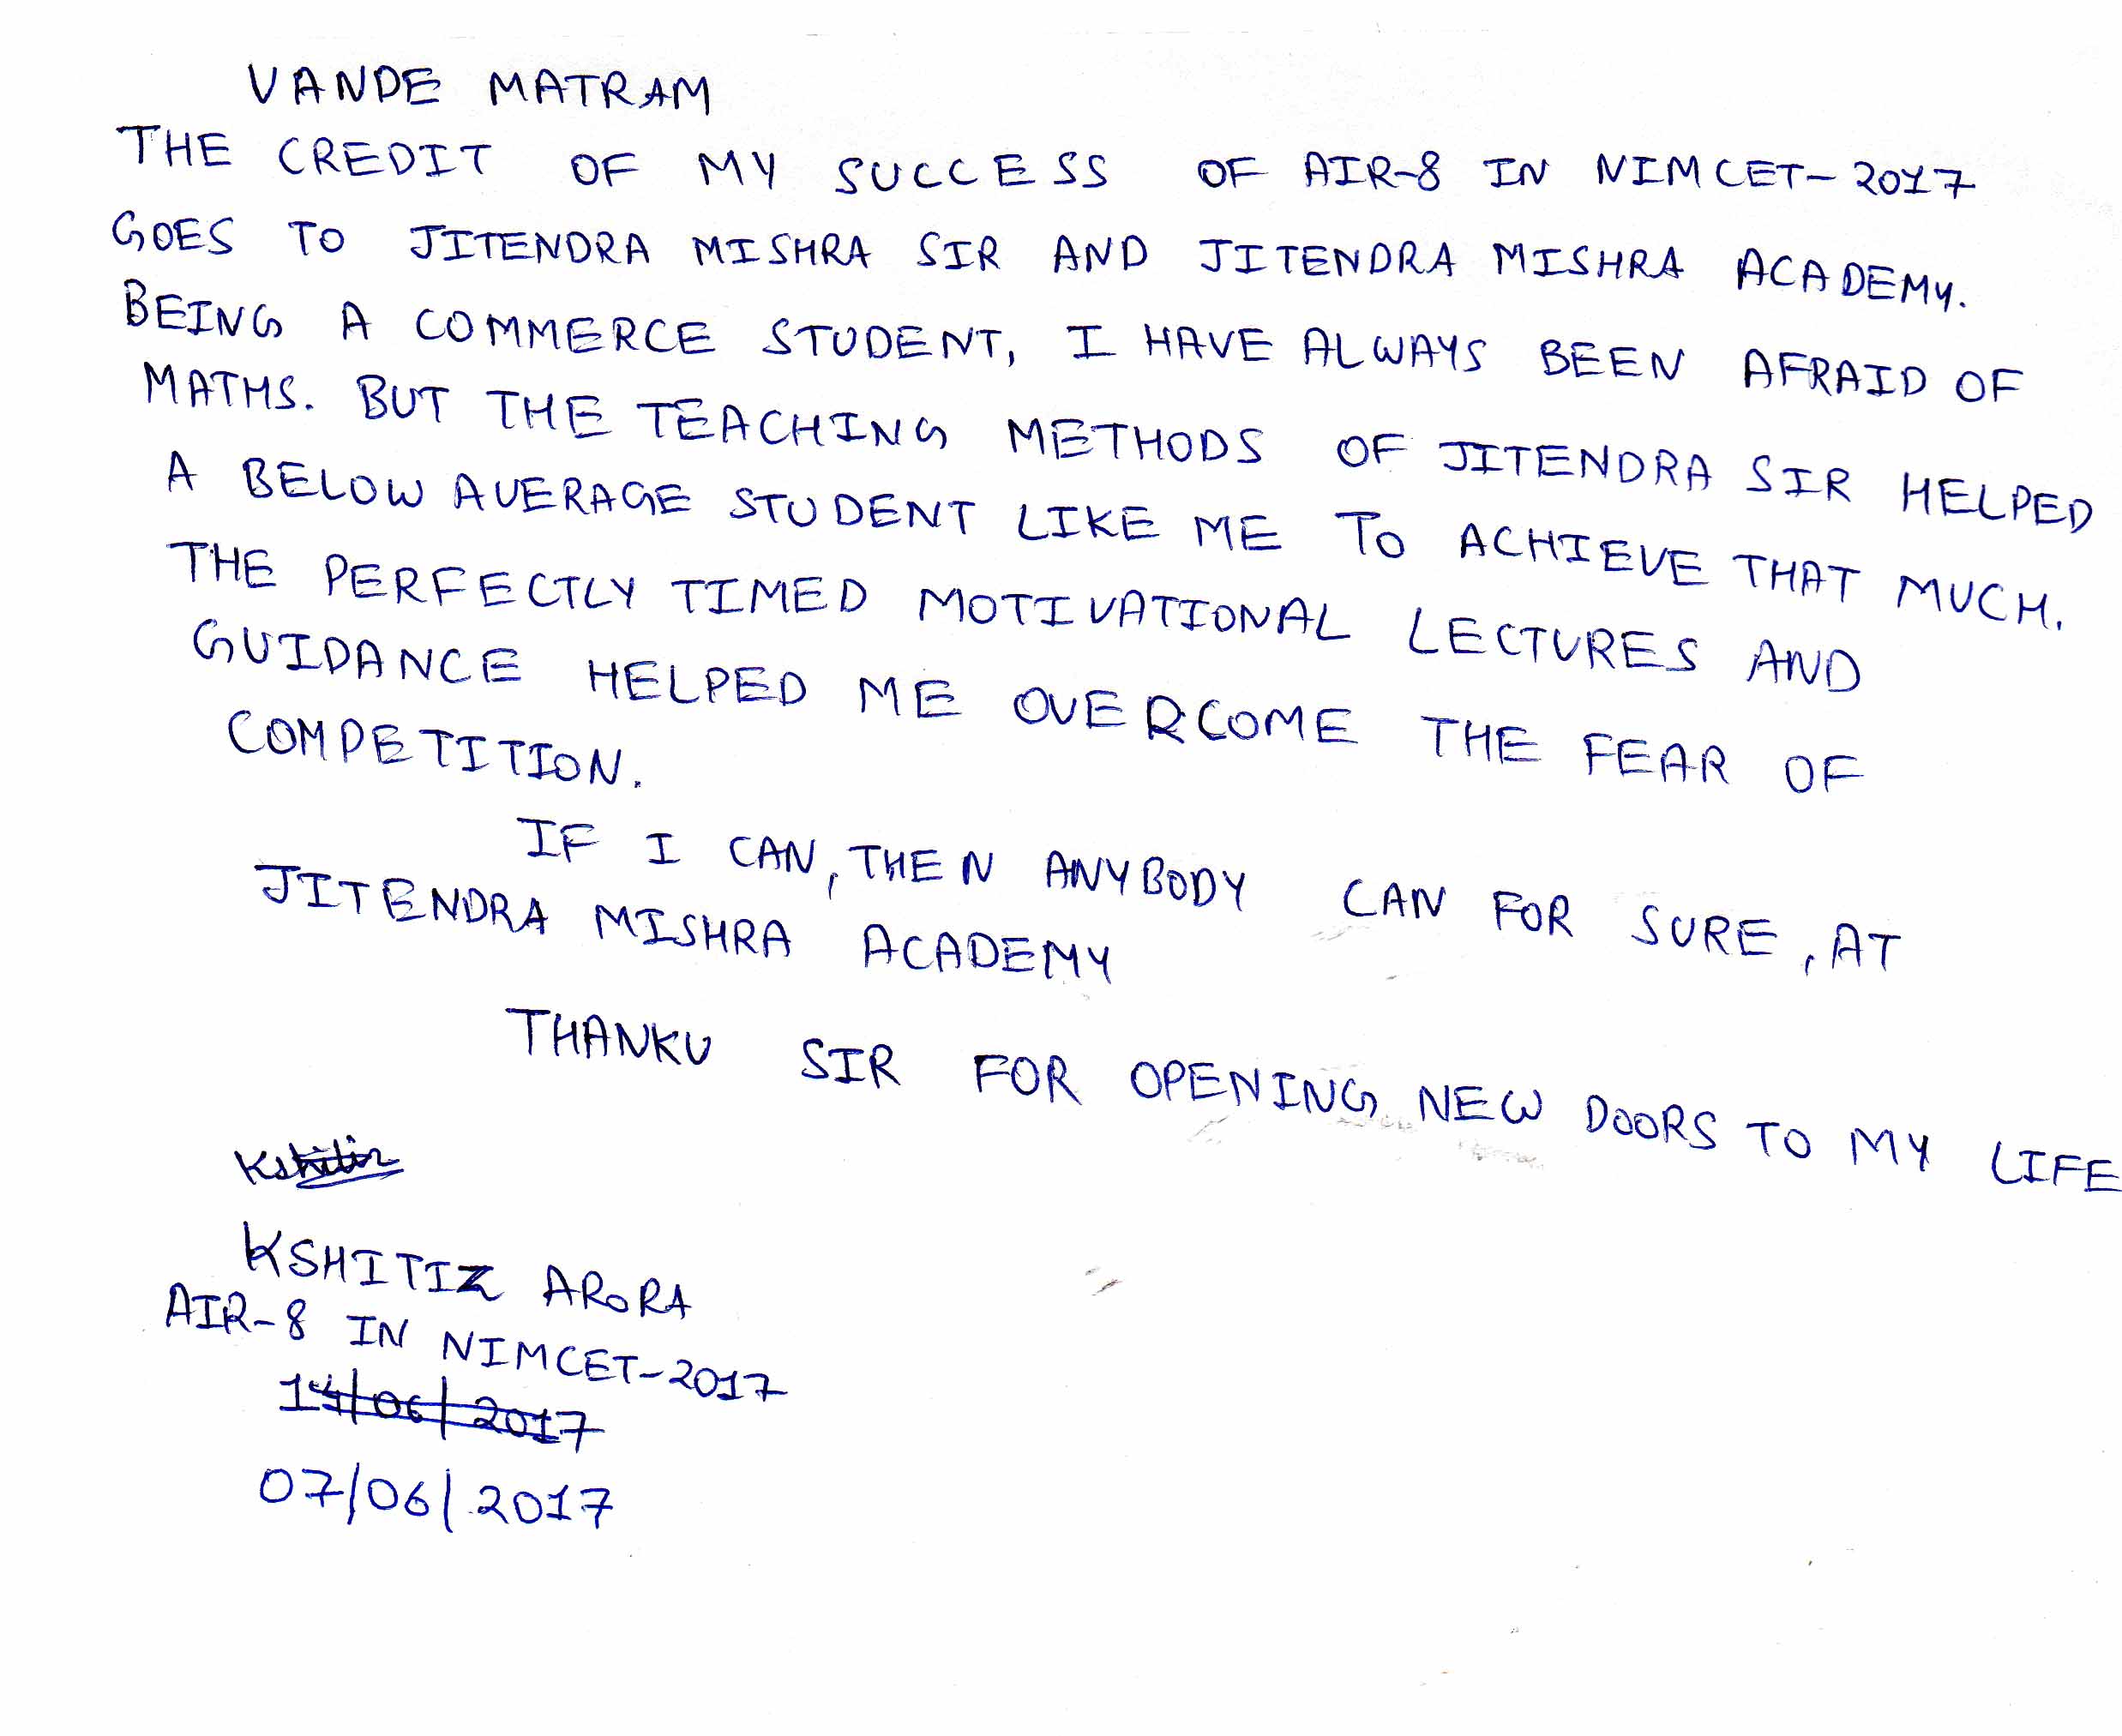 VANDE MATRAM
THE CREDIT OF MY SUCCESS OF AIR-8 IN NIMCET-2017
GOES TO JITENDRA MISHRA SIR AND JITENDRA MISHRA ACADEMY.
BEING A COMMERCE STUDENT, I HAVE ALWAYS BEEN AFRAID OF
MATHS. BUT THE TEACHING METHODS OF JITENDRA SIR HELPED
A BELOW AVERAGE STUDENT LIKE ME TO ACHIEVE THAT MUCH.
THE PERFECTLY TIMED MOTIVATIONAL LECTURES AND
GUIDANCE HELPED ME OVERCOME THE FEAR OF
COMPETITION.
IF I CAN, THEN ANYBODY CAN FOR SURE, AT
JITENDRA MISHRA ACADEMY
THANKU SIR FOR OPENING NEW DOORS TO MY LIFE
KSHITIZ ARORA
AIR-8 IN NIMCET-2017
14/06/2017
07/06/2017